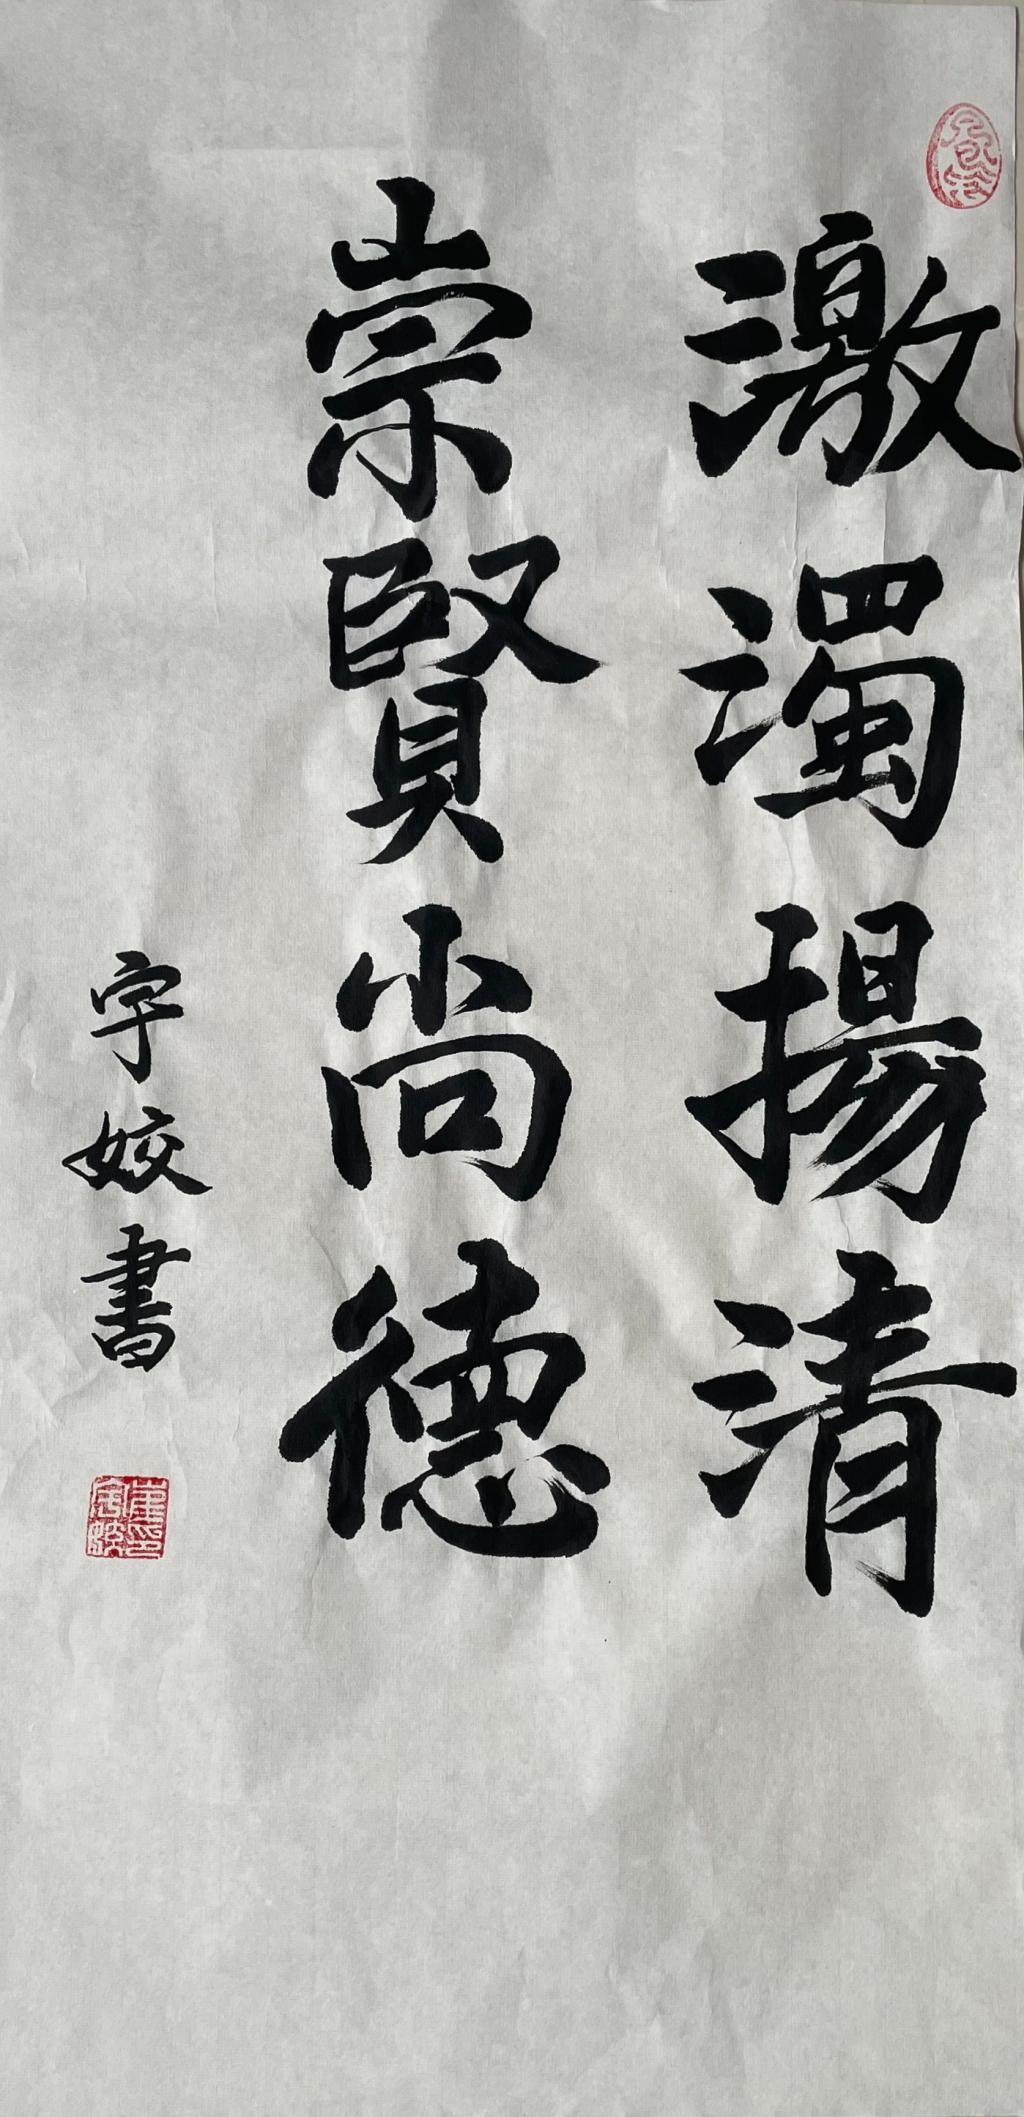 激濁揚清
崇賢尚德
字姣書